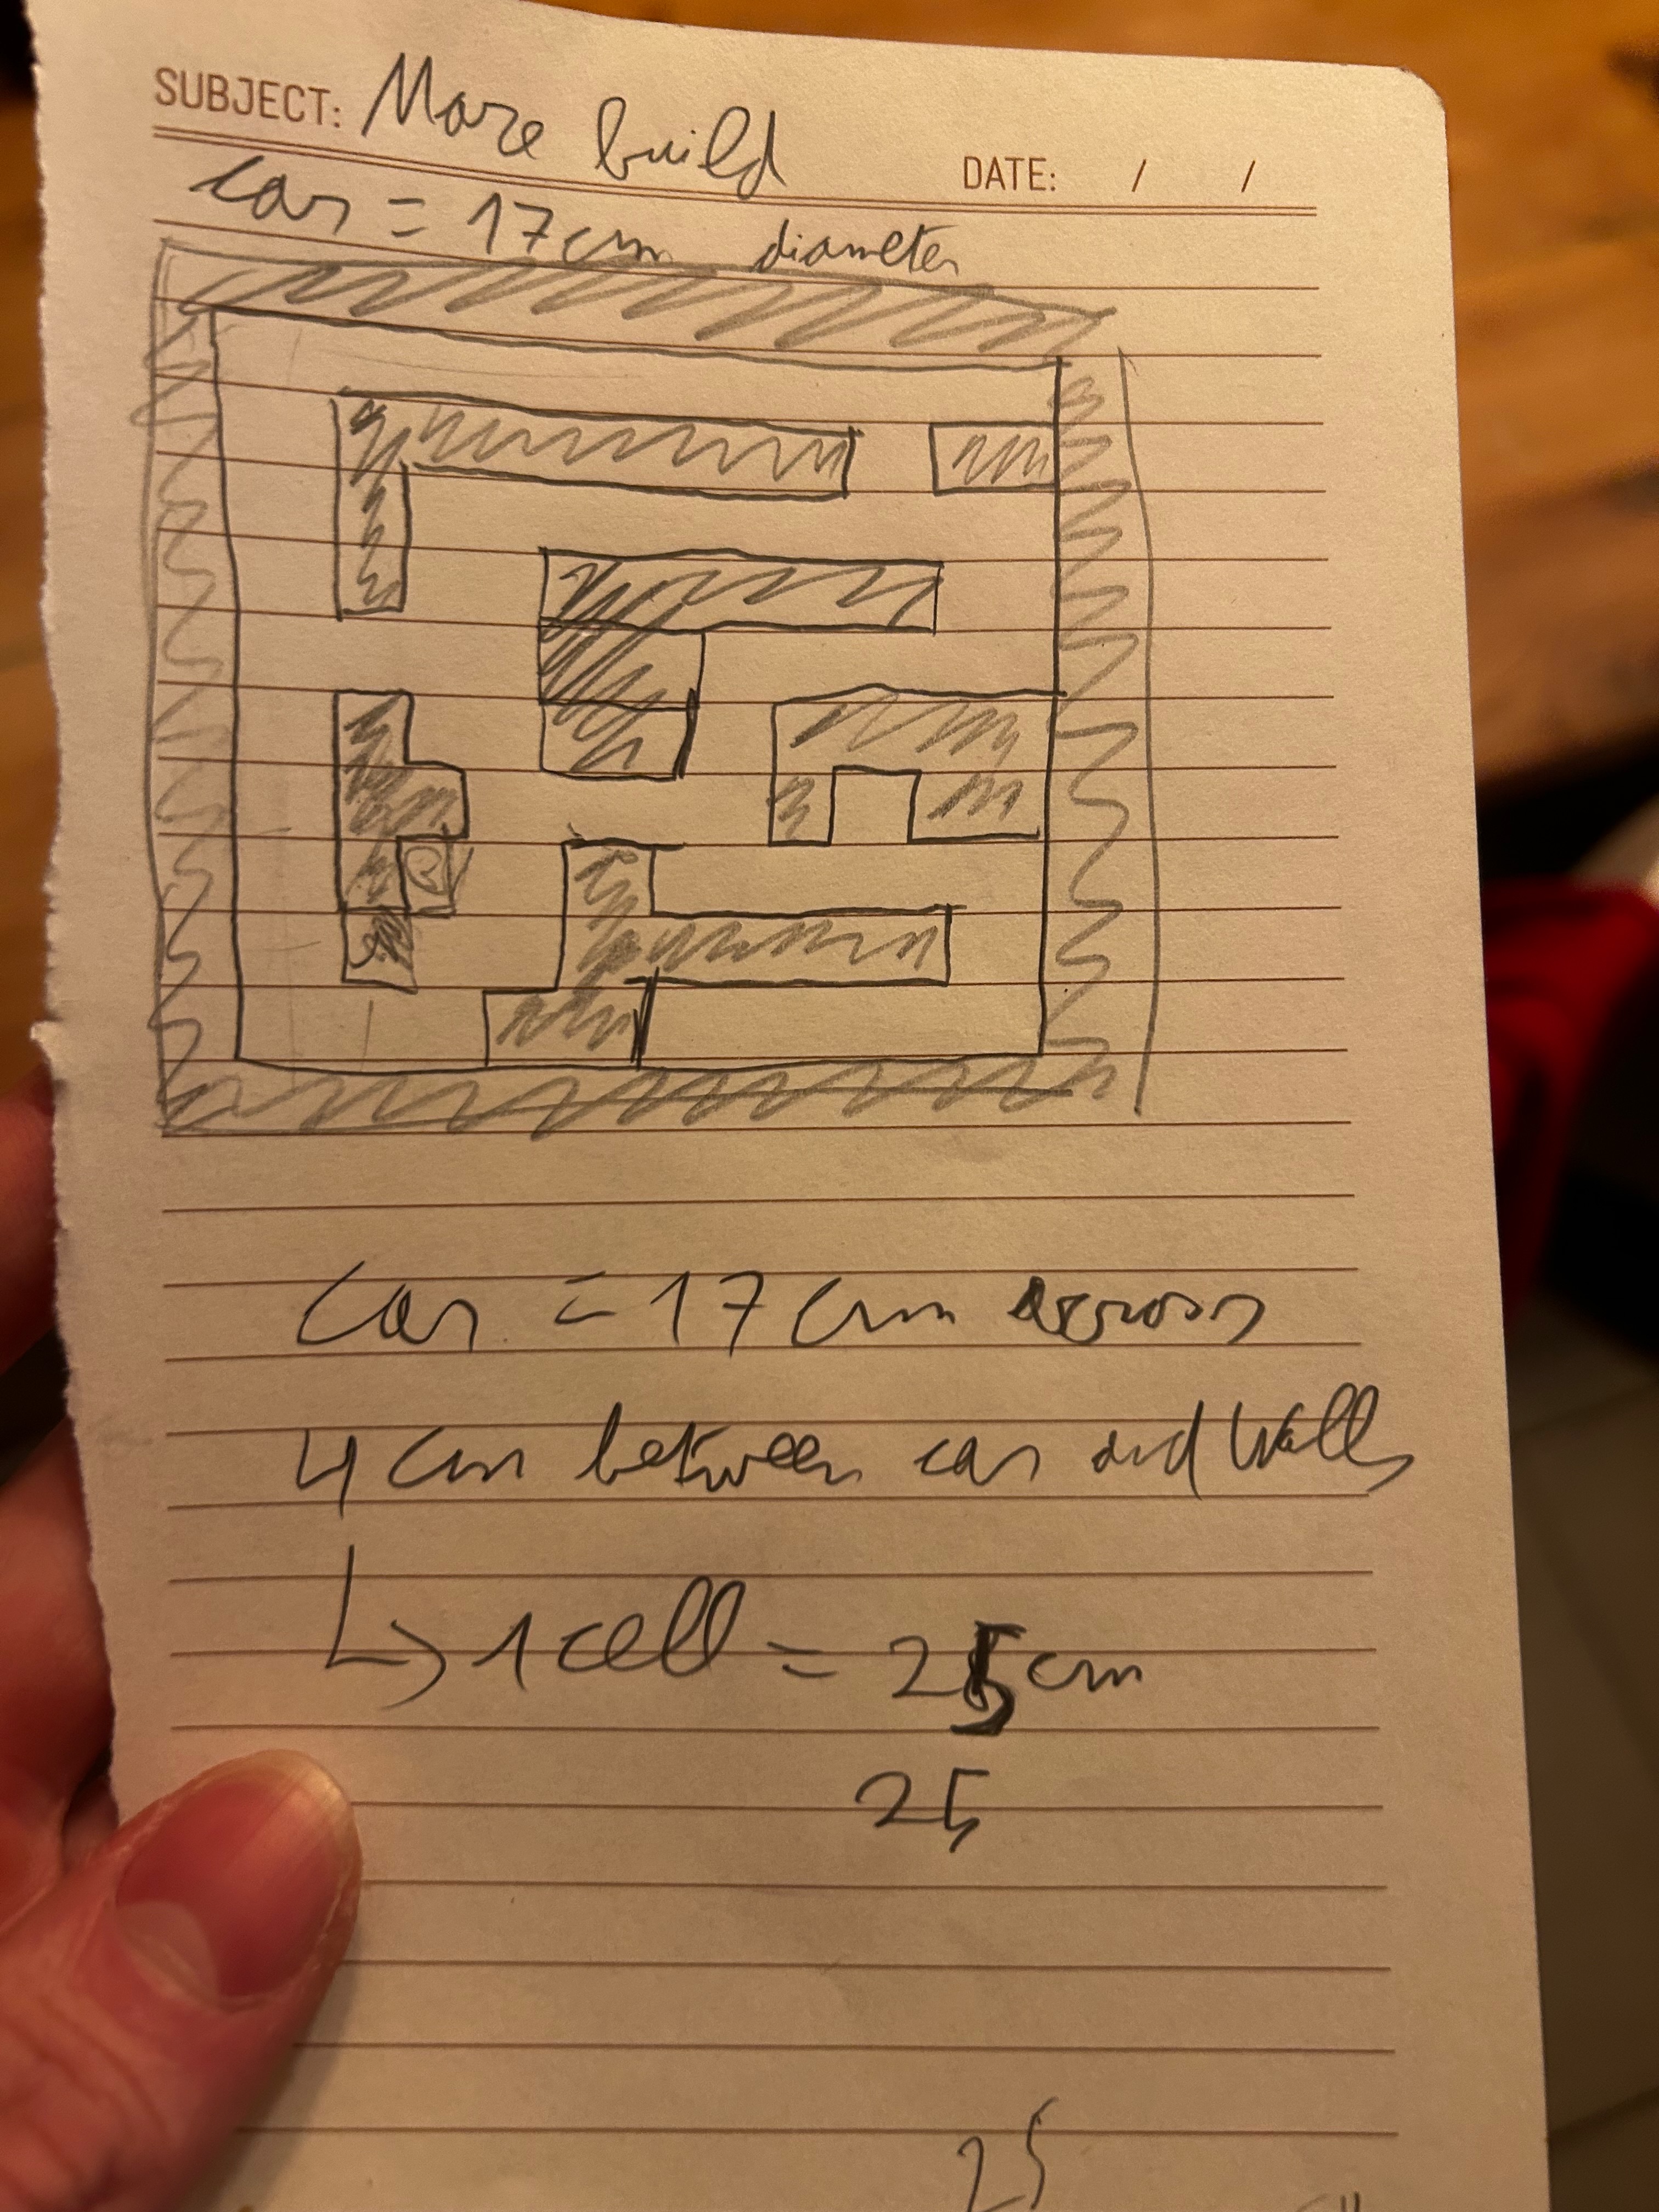 SUBJECT: Maze build
DATE: / /
car = 17cm diameter
car = 17 cm across
4 cm between car and walls
↳ 1 cell = 25 cm
25
25